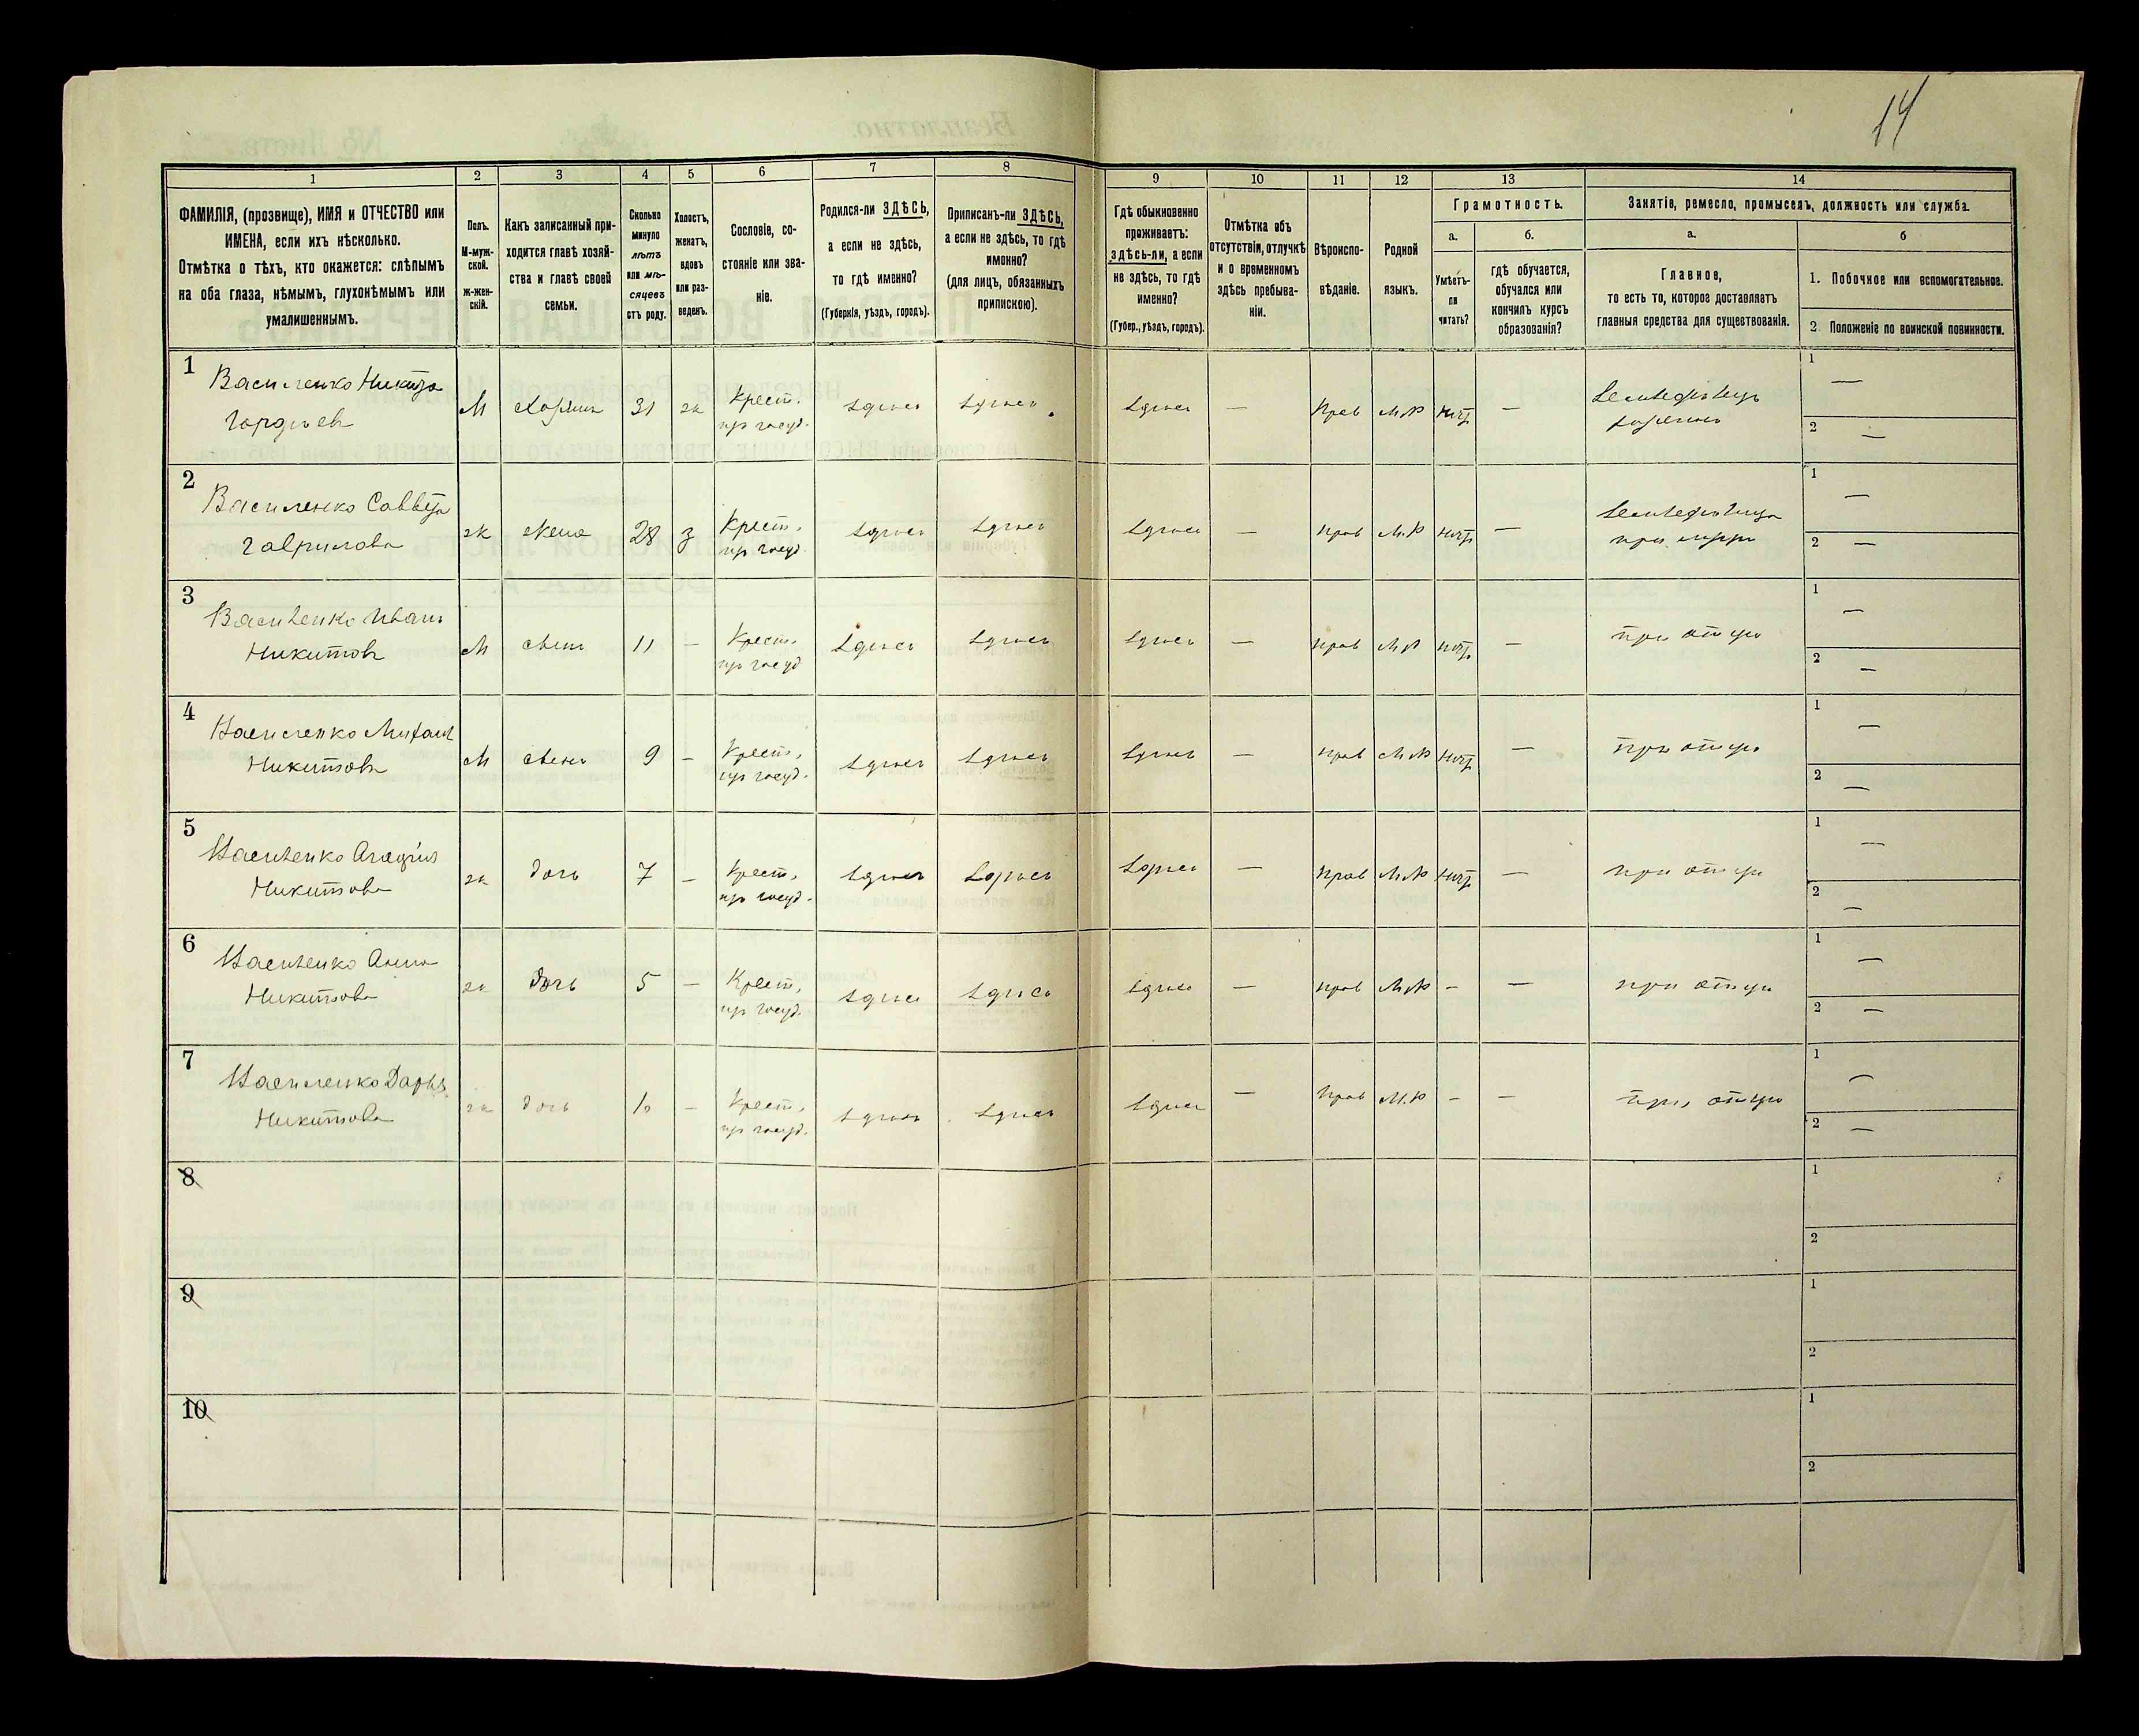 14
1
2
3
4
5
6
7
8
9
10
11
12
13
14
ФАМИЛІЯ, (прозвище), ИМЯ и ОТЧЕСТВО или
ИМЕНА, если ихъ нѣсколько.
Отмѣтка о тѣхъ, кто окажется: слѣпымъ
на оба глаза, нѣмымъ, глухонѣмымъ или
умалишеннымъ.
Полъ.
М-муж-
ской.
ж-жен-
скій.
Какъ записанный при-
ходится главѣ хозяй-
ства и главѣ своей
семьи.
Сколько
минуло
лѣтъ
или мѣ-
сяцевъ
отъ роду.
Холостъ,
женатъ,
вдовъ
или раз-
веденъ.
Сословіе, со-
стояніе или зва-
ніе.
Родился-ли ЗДѢСЬ,
а если не здѣсь,
то гдѣ именно?
(Губернія, уѣздъ, городъ).
Приписанъ-ли ЗДѢСЬ,
а если не здѣсь, то гдѣ
именно?
(для лицъ, обязанныхъ
припискою).
Гдѣ обыкновенно
проживаетъ:
здѣсь-ли, а если
не здѣсь, то гдѣ
именно?
(Губер., уѣздъ, городъ).
Отмѣтка объ
отсутствіи, отлучкѣ
и о временномъ
здѣсь пребыва-
ніи.
Вѣроиспо-
вѣданіе.
Родной
языкъ.
Грамотность.
а.
Умѣетъ-
ли
читать?
б.
гдѣ обучается,
обучался или
кончилъ курсъ
образованія?
Занятіе, ремесло, промыселъ, должность или служба.
а.
Главное,
то есть то, которое доставляетъ
главныя средства для существованія.
б
1. Побочное или вспомогательное.
2 Положеніе по воинской повинности.
1
Василенко Никита
Гордѣевъ
М
хозяинъ
31
ж
Крест.
изъ госуд.
здѣсь
здѣсь
здѣсь
—
прав
М.Р
нѣтъ
—
Земледѣлецъ
хозяинъ
1 —
2 —
2
Василенко
Гаврилова
ж
жена
28
з
Крест.
изъ госуд
здѣсь
здѣсь
здѣсь
—
прав
М.Р
нѣтъ
—
Земледѣлица
при мужѣ
1 —
2 —
3
Василенко Иванъ
Никитовъ
М
сынъ
11
—
Крест.
изъ госуд
здѣсь
здѣсь
здѣсь
—
прав
М.Р
нѣтъ
—
при отцѣ
1 —
2 —
4
Василенко Михаилъ
Никитовъ
М
сынъ
9
—
Крест.
изъ госуд.
здѣсь
здѣсь
здѣсь
—
прав
М.Р
нѣтъ
—
при отцѣ
1 —
2 —
5
Василенко
Никитова
ж
дочь
7
—
Крест.
изъ госуд.
здѣсь
здѣсь
здѣсь
—
прав
М.Р
нѣтъ
—
при отцѣ
1 —
2 —
6
Василенко Анна
Никитова
ж
дочь
5
—
Крест.
изъ госуд.
здѣсь
здѣсь
здѣсь
—
прав
М.Р
—
—
при отцѣ
1 —
2 —
7
Василенко Дарья
Никитова
ж
дочь
—
Крест.
изъ госуд.
здѣсь
здѣсь
здѣсь
—
прав
М.Р
—
—
при отцѣ
1 —
2 —
8
1
2
9
1
2
10
1
2